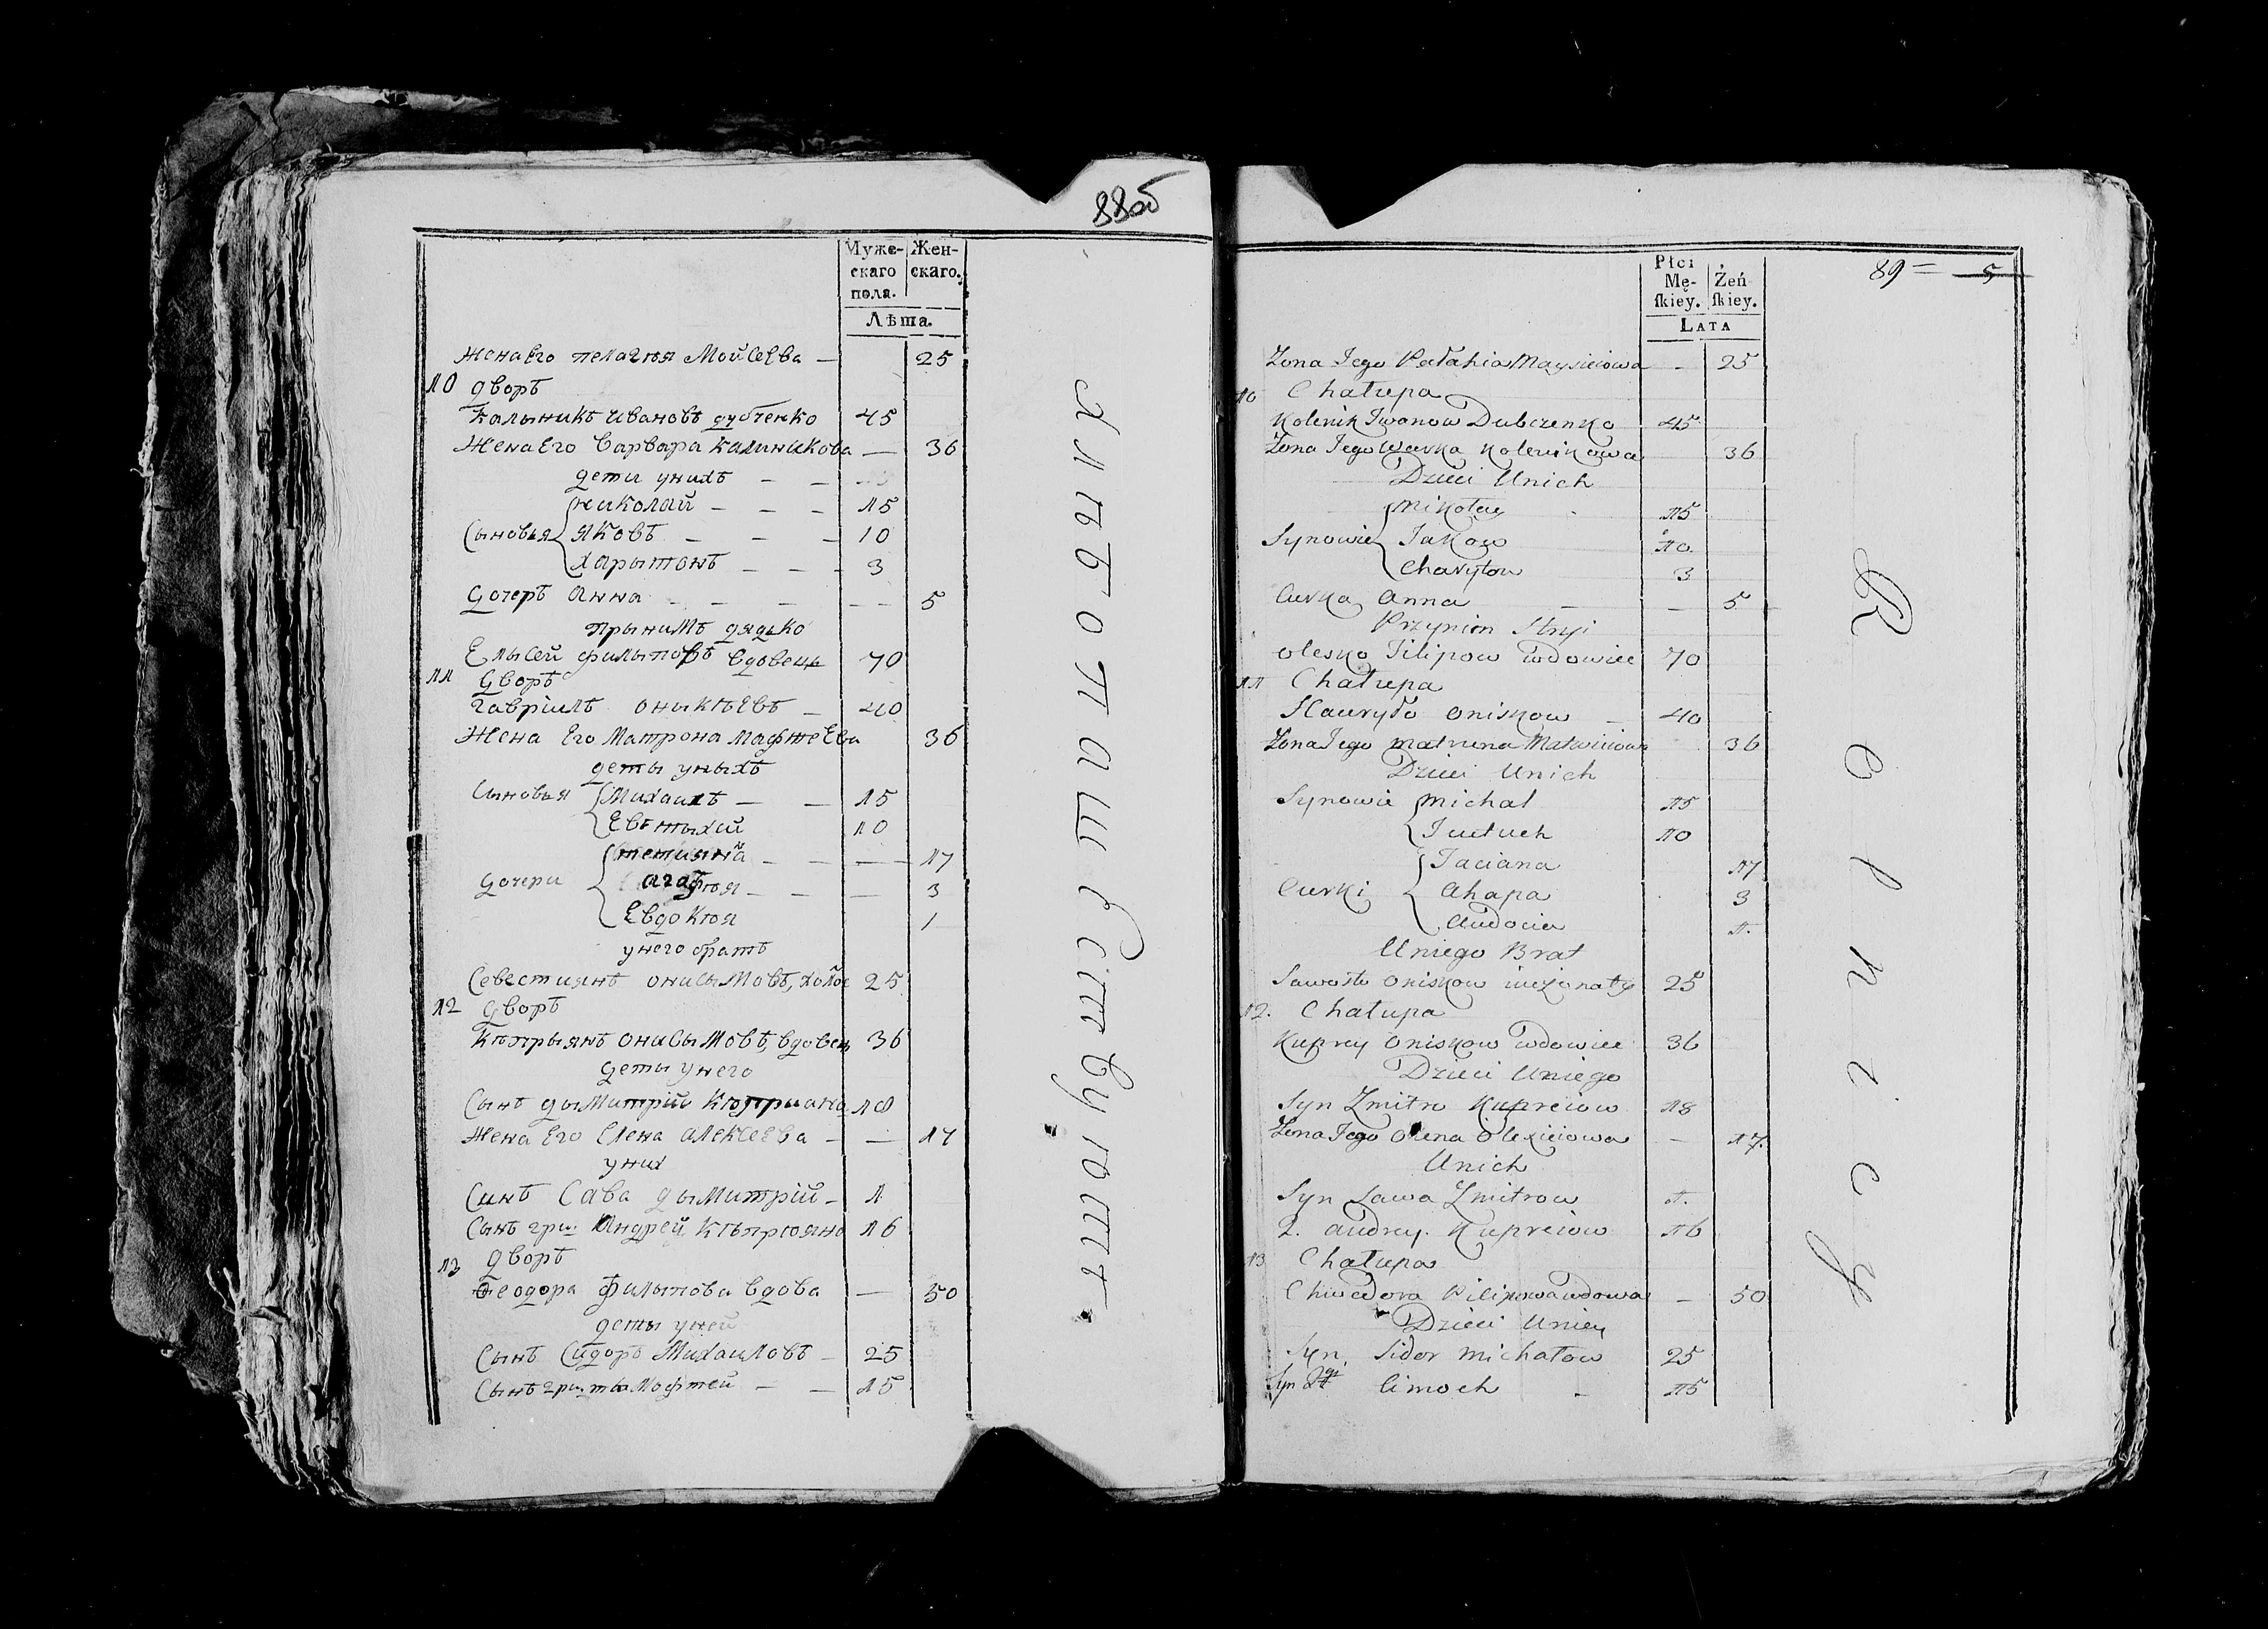 88об
Муже-
скаго
пола.
Жен-
скаго.
Лѣта.
Жена Его пелагѣя Мойсеева — 25
10 дворъ
Калыникъ ивановъ дубченко 45
Жена Его варвара калиникова — 36
дети унихъ — —
Сыновья николай — — — 15
яковъ — — — 10
харытонъ — — — 3
дочеръ анна — — — — — 5
прынимъ дядько
Елысей филыповъ вдовець 70
11 дворъ
гавріилъ оныкѣевъ — 40
Жена Его Матрона Мафтеева 36
деты уныхъ
Сыновья Михаилъ — — 15
Евтыхий 10
дочери тетияна — — — 17
агафѣя — — 3
Евдокѣя 1
унего братъ
Севестиянъ онисымовъ, холос 25
12 дворъ
Кѣпрыянъ онисымовъ, вдовец 36
деты унего
Сынъ дымитрій кѣприяно 18
Жена Его Елена алексеева — — 17
уних
Синъ Сава дымитрій — 1
Сынъ гри: Андрей Кѣпрѣяно 16
13 дворъ
Ѳеодора филыпова вдова — 50
деты уней
Сынъ Сидоръ Михаиловъ — 25
Сынъ гри: тымофтей — — 15
хлѣбопашествуютъ
89 = 5
Płci
Mę-
ſkiey.
Żeń-
ſkiey.
LATA
Zona Jego Pałahia Maysieiowa — 25
10 Chałupa
Kolenik Iwonow Dubczenko 45
Zona Jego Warka Kolenikowa 36
Dzieci Unich
Synowie Mikołay 15
Jakow 10
Charyton 3
Curka Anna — — 5
Przynim Stryi
olesko Filipow wdowiec 70
11 Chałupa
Hawryło oniskow — 40
Zona Jego Matruna Matwieiowa 36
Dzieci Unich
Synowie Michał 15
Jeutuch 10
Curki Taciana 17
Ahapa 3
Audocia 1.
Uniego Brat
Sawosto oniskow nieżonaty 25
12. Chałupa
Kuprey oniskow wdowiec 36
Dzieci Uniego
Syn Zmitro Kupreiow 18
Zona Jego Olena Olexieiowa — 17.
Unich
Syn Sawa Zmitrow 1.
2. Andrey Kupreiow 16
13 Chałupa
Chwedora Pilipowa wdowa — 50
Dzieci Uniey
Syn Sidor Michałow 25
Syn 2gi Cimoch — 15
Rolnicy